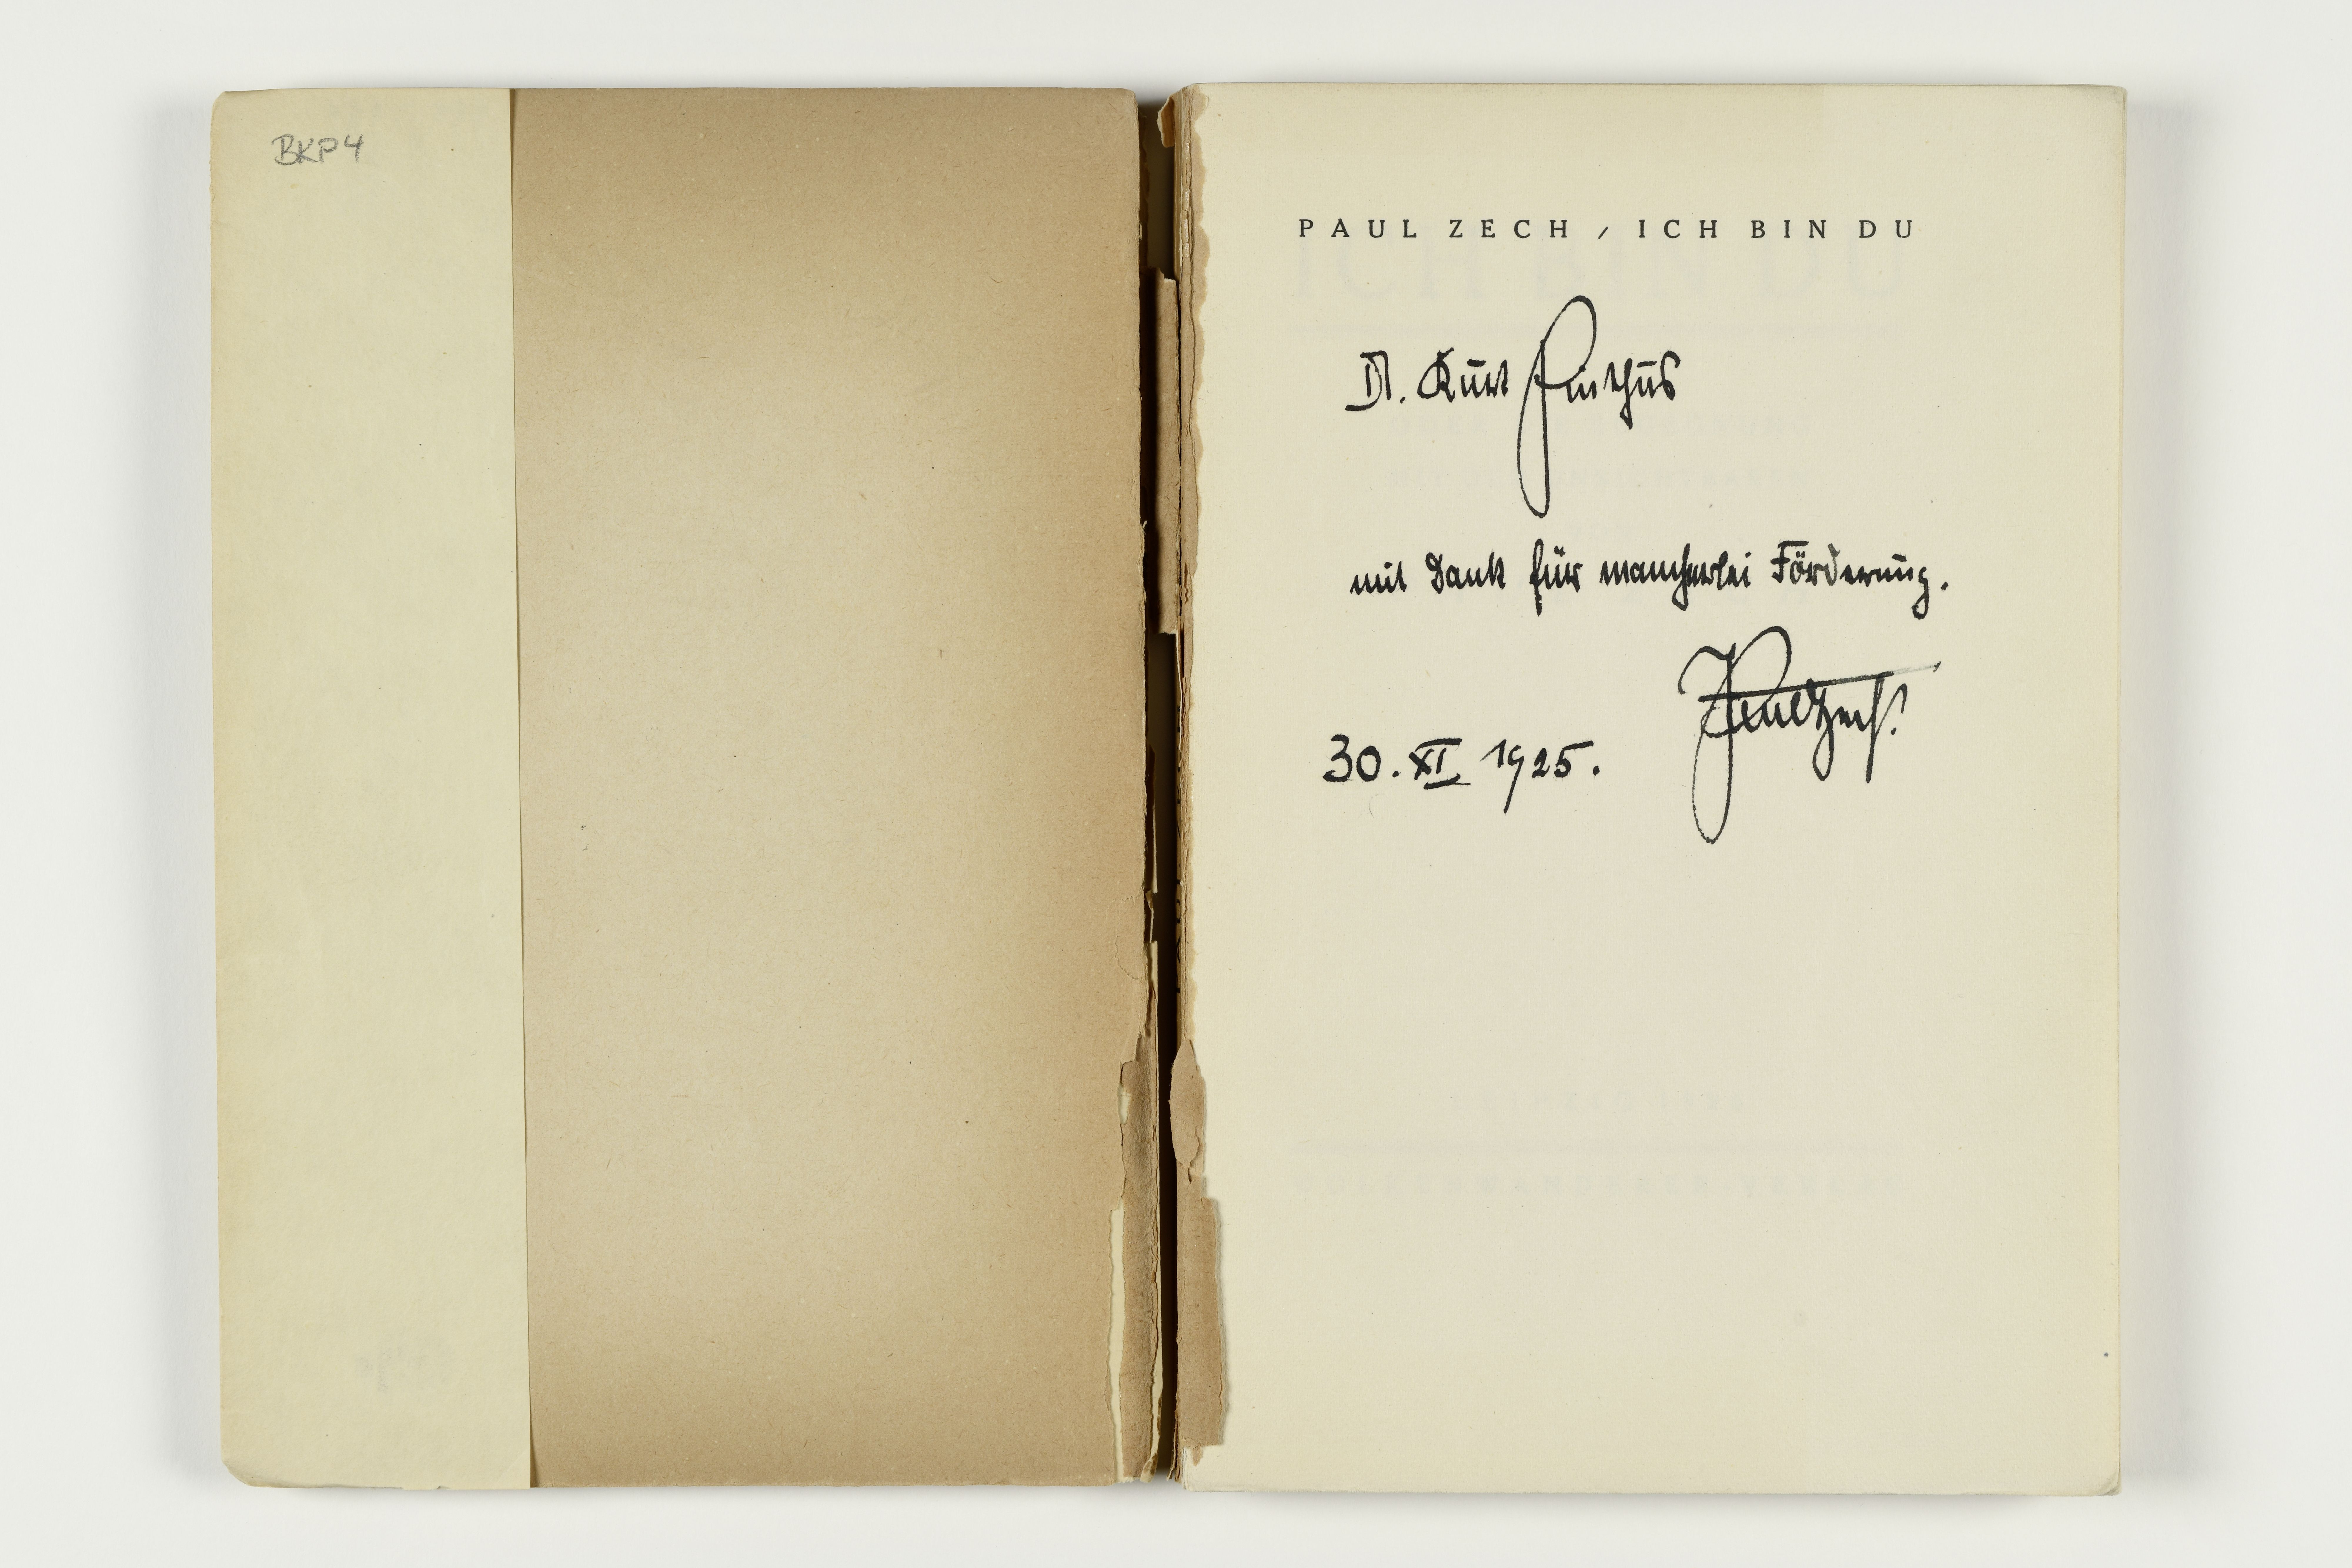 BKP4
PAUL ZECH / ICH BIN DU
Dr. Kurt Pinthus
mit Dank für mancherlei Förderung.
Paul Zech.
30. XI 1925.